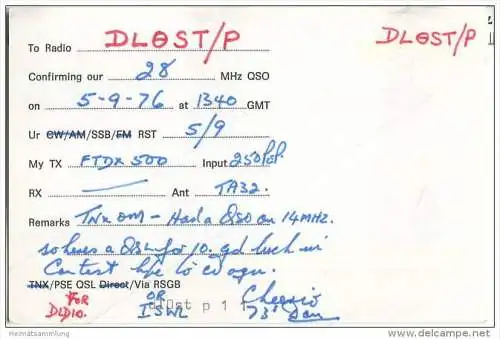 To Radio DLØST/P DLØST/P
Confirming our 28 MHz QSO
on 5-9-76 at 1340 GMT
Ur CW/AM/SSB/FM RST 5/9
My TX FTDX 500 Input 250 P.E.P.
RX Ant TA32.
Remarks TNX OM - Had a QSO on 14 MHz.
so heres a QSL for 10. gd luck in
Contest hpe to cu agn.
TNX/PSE QSL Direct/Via RSGB
FOR OR Cheerio
DLD10. ISWL 73's Dan
dl0st p 1 1
Heimatsammlung